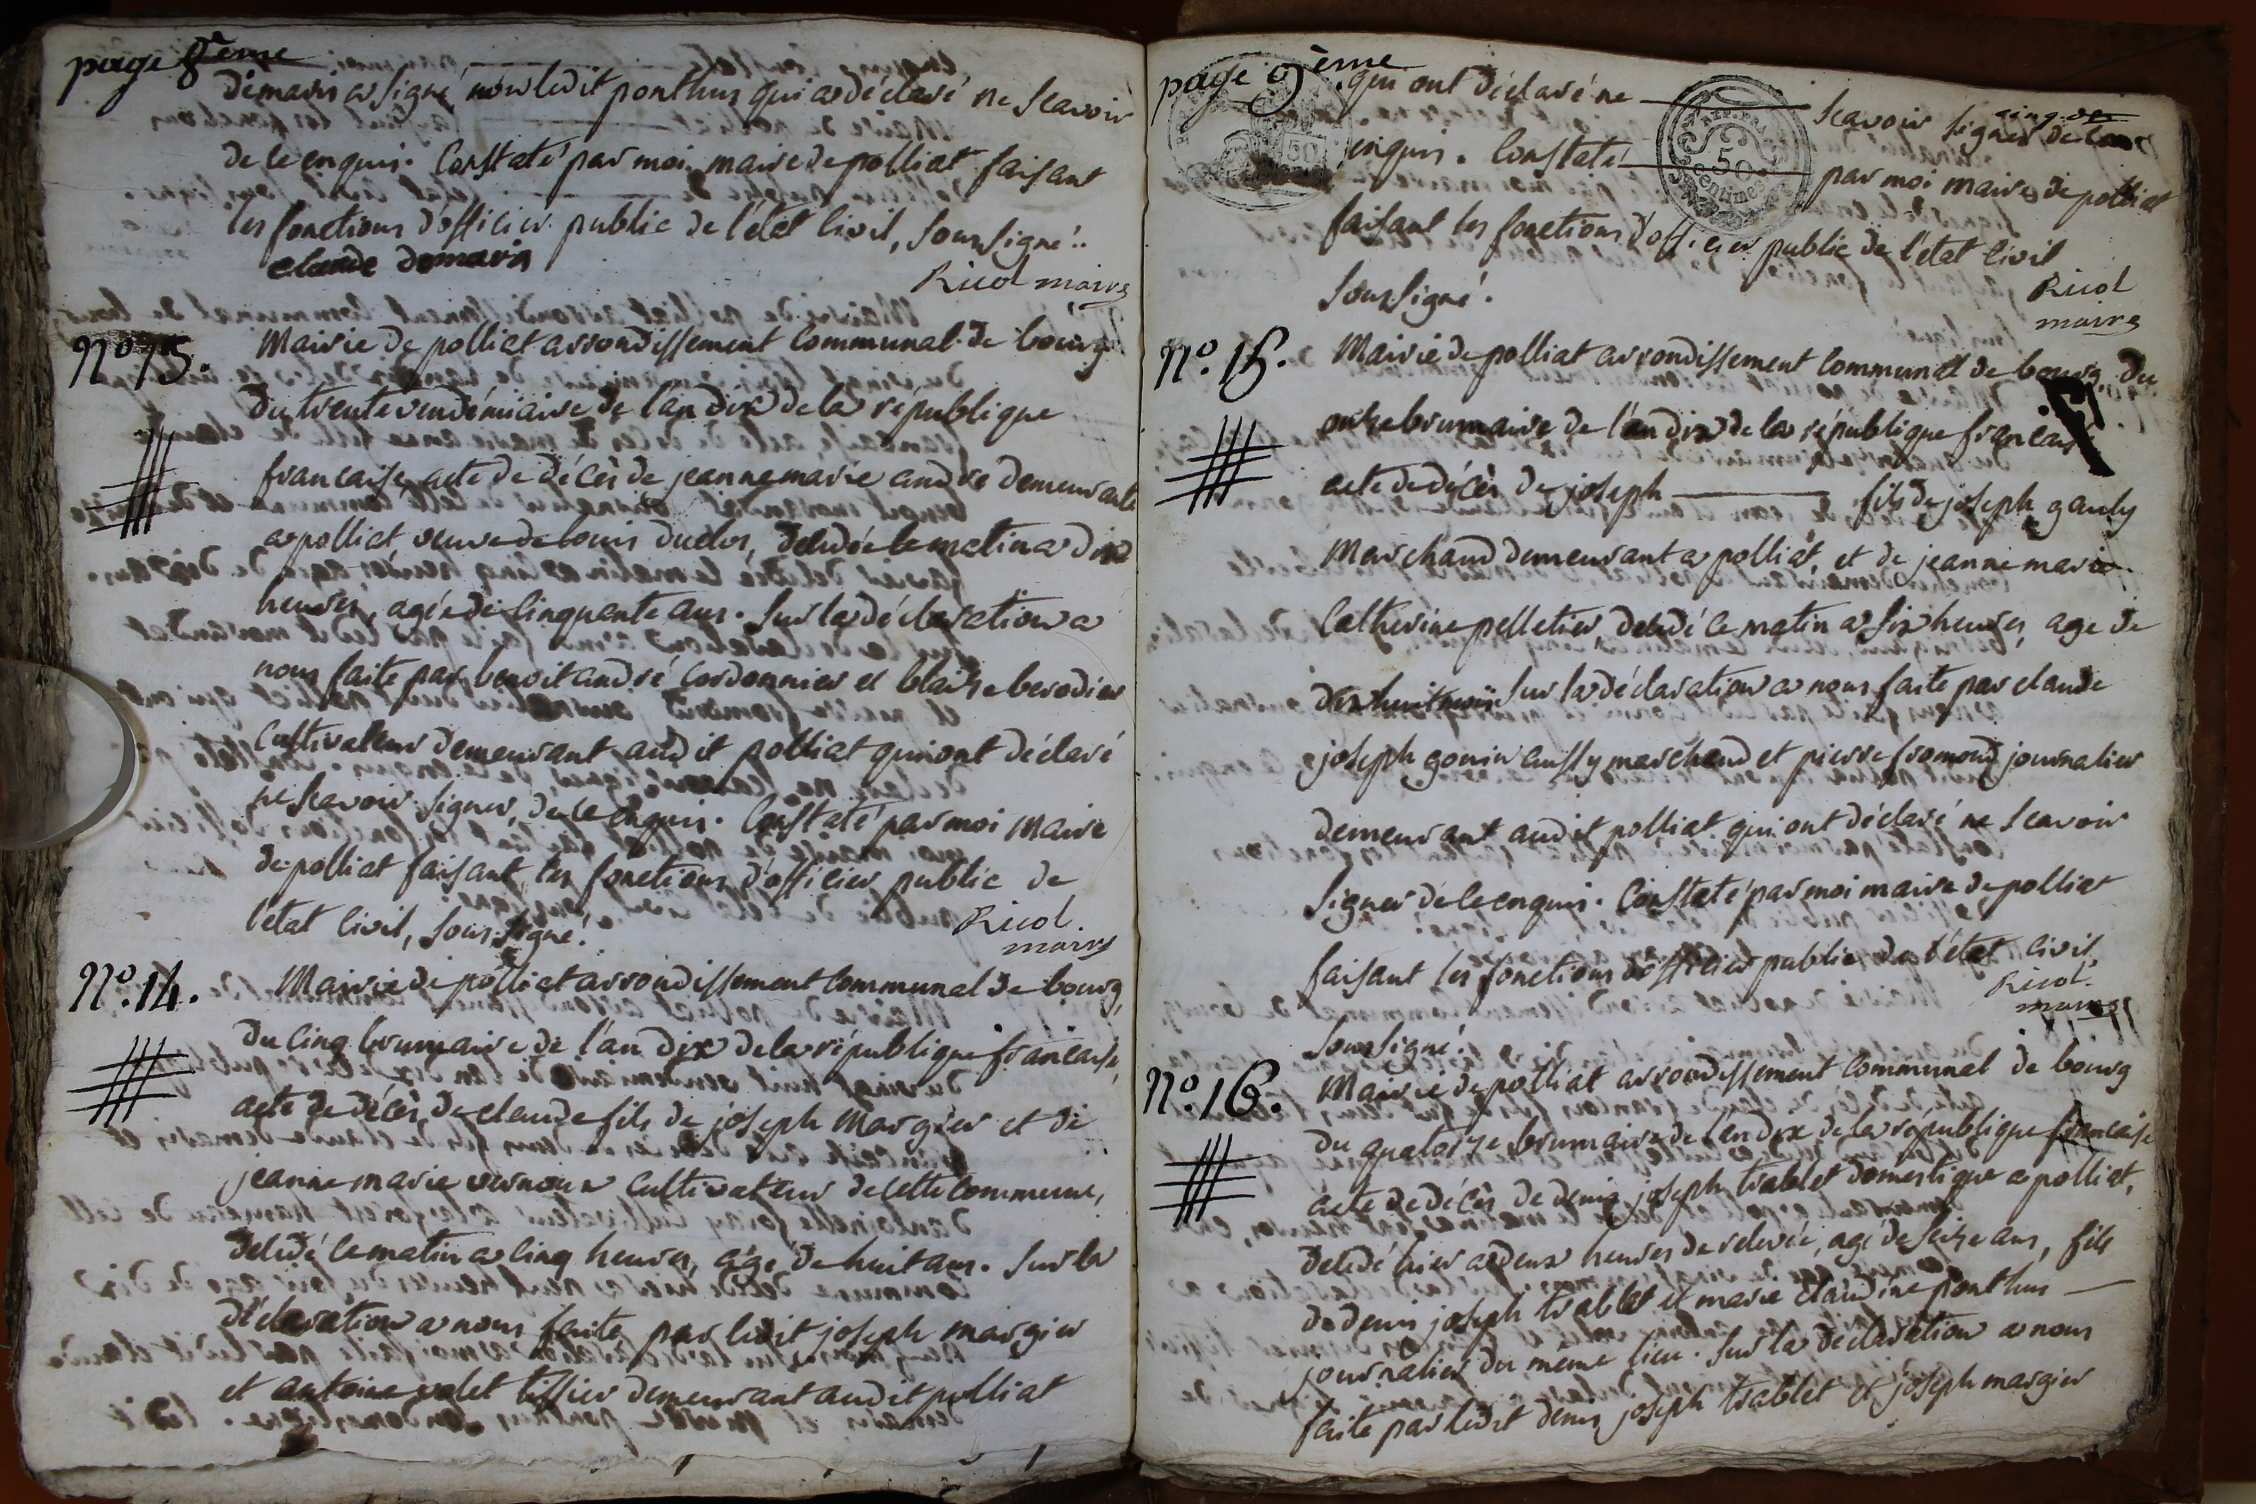 page 8ème
demaris a signé non ledit ponthus qui a déclaré ne Scavoir
de ce enquis. Constaté par moi maire de polliat faisant
les fonctions d'officier public de l'état Civil, Soussigné..
claude demaris
Ricol maire
N° 13.
Mairie de polliat arrondissement Communal de bourg
du trente vendémiaire de l'an dix de la république
francaise, acte de décès de jeanne marie andré demeurante
a polliat, veuve de louis duclos, décédée le matin a dix
heures, agée de Cinquante ans. Sur la déclaration a
nous faite par benoit andré Cordonnier et blaise berodier
Cultivateur demeurant audit polliat qui ont déclaré
ne Scavoir Signer, de ce enquis. Constaté par moi Maire
de polliat faisant les fonctions d'officier public de
l'état Civil, Soussigné.
Ricol.
maire
N° 14.
Mairie de polliat arrondissement Communal de bourg,
du Cinq brumaire de l'an dix de la république francaise,
acte de décès de claude fils de joseph Margier et de
jeanne marie vernoux Cultivateur de cette Commune,
décédé ce matin a Cinq heures, agé de huit ans. Sur la
déclaration a nous faite par ledit joseph margier
et antoine volet tissier demeurant audit polliat
page 9ème
qui ont déclaré ne Scavoir Signer de ce
enquis. Constaté par moi maire de polliat
REP. FRA.
50
Centimes
faisant les fonctions d'officier public de l'état Civil
Soussigné.
Ricol
maire
N° 15.
Mairie de polliat arrondissement Communal de bourg, du
onze brumaire de l'an dix de la république francaise
acte de décès de joseph fils de joseph gauly
Marchand demeurant a polliat, et de jeanne marie
Catherine pelletier, décédé ce matin a Six heures, age de
dix huit mois Sur la déclaration a nous faite par claude
joseph gonin aussy marchand et pierre fromond journalier
demeurant audit polliat qui ont déclaré ne Scavoir
Signer de ce enquis. Constaté par moi maire de polliat
faisant les fonctions d'officier public de l'état Civil,
Ricol.
maire
Soussigné.
N° 16.
Mairie de polliat arrondissement Communal de bourg
du quatorze brumaire de l'an dix de la république francaise
acte de décès de denis joseph trablet domestique a polliat,
décédé hier a deux heures de relevée, agé de Seize ans, fils
de denis joseph trablet et marie claudine ponthus
journalier du même lieu. Sur la déclaration a nous
faite par ledit denis joseph trablet et joseph margier